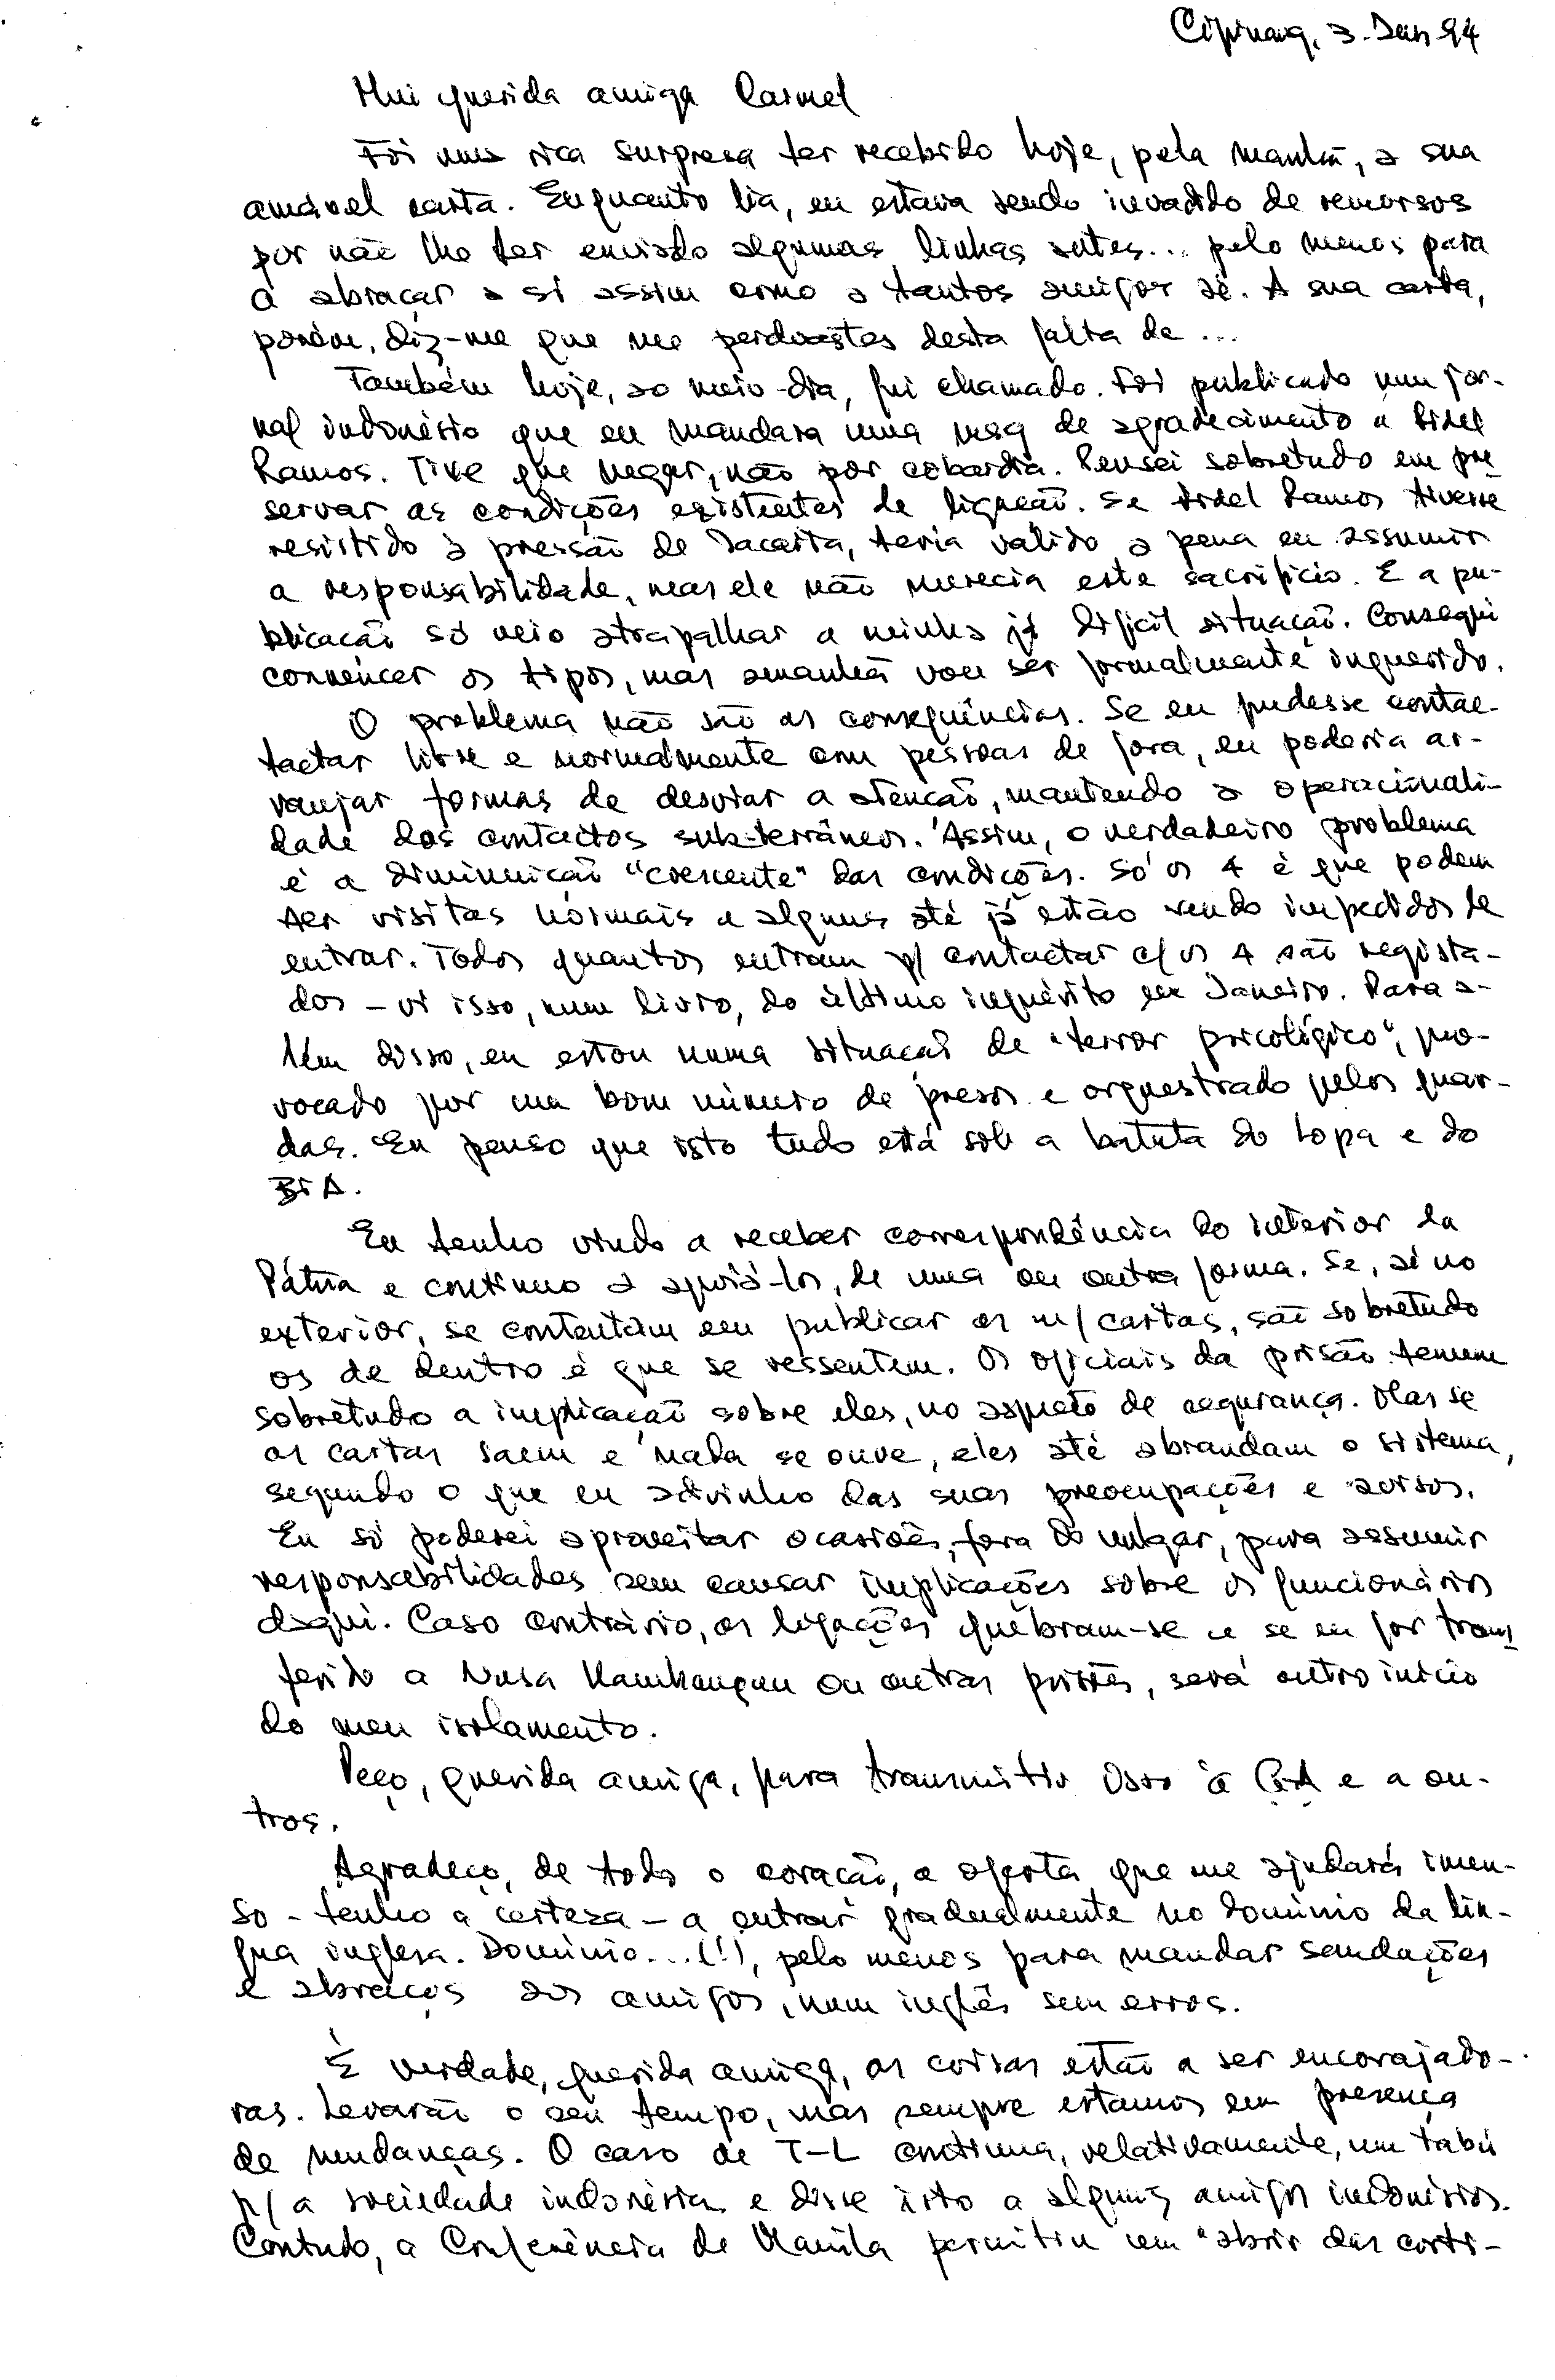 Cipinang, 3. Jun 94
Mui querida amiga Carmel
Foi uma rica surpresa ter recebido hoje, pela manhã, a sua
amável carta. Enquanto lia, eu estava sendo invadido de remorsos
por não lhe ter enviado algumas linhas antes... pelo menos para
a abraçar a si assim como a tantos amigos aí. A sua carta,
porém, diz-me que me perdoastes desta falta de ...
Também hoje, ao meio-dia, fui chamado. Foi publicado num jor-
nal indonésio que eu mandara uma msg de agradecimento a Fidel
Ramos. Tive que negar, não por cobardia. Pensei sobretudo em pre
servar as condições existentes de ligação. Se Fidel Ramos tivesse
resistido à pressão de Jacarta, teria valido a pena eu assumir
a responsabilidade, mas ele não merecia este sacrifício. E a pu-
blicação só veio atrapalhar a minha já difícil situação. Consegui
convencer os tipos, mas amanhã vou ser formalmente inquerido.
O problema não são as consequências. Se eu pudesse contac-
tactar livre e normalmente com pessoas de fora, eu poderia ar-
ranjar formas de desviar a atenção, mantendo a operacionali-
dade dos contactos subterrâneos. Assim, o verdadeiro problema
é a diminuição "crescente" das condições. Só os 4 é que podem
ter visitas normais e alguns até já estão sendo impedidos de
entrar. Todos quantos entram p/ contactar c/ os 4 são regista-
dos - vi isso, num livro, do último inquérito em Janeiro. Para a-
lém disso, eu estou numa situação de "terror psicológico", pro-
vocado por um bom número de presos e orquestrado pelos guar-
das. Eu penso que isto tudo está sob a batuta do Lopa e do
BIA.
Eu tenho vindo a receber correspondência do interior da
Pátria e continuo a apoiá-los, de uma ou outra forma. Se, aí no
exterior, se contentam em publicar as m/ cartas, são sobretudo
os de dentro é que se ressentem. Os oficiais da prisão temem
sobretudo a implicação sobre eles, no aspecto de segurança. Mas se
as cartas saem e nada se ouve, eles até abrandam o sistema,
segundo o que eu adivinho das suas preocupações e avisos.
Eu só poderei aproveitar ocasiões, fora do vulgar, para assumir
responsabilidades sem causar implicações sobre os funcionários
daqui. Caso contrário, as ligações quebram-se e se eu for trans
ferido a Nusa Kambangan ou outras prisões, será outro início
do meu isolamento.
Peço, querida amiga, para transmitir isso à e a ou-
tros.
Agradeço, de todo o coração, a oferta que me ajudará imen-
so - tenho a certeza - a entrar gradualmente no domínio da lín-
gua inglesa. Domínio...(!), pelo menos para mandar saudações
e abraços aos amigos, num inglês sem erros.
É verdade, querida amiga, as coisas estão a ser encorajado-
ras. Levarão o seu tempo, mas sempre estamos em presença
de mudanças. O caso de T-L continua, relativamente, um tabú
p/ a sociedade indonésia e disse isto a alguns amigos indonésios.
Contudo, a Conferência de Manila permitiu um "abrir das corti-